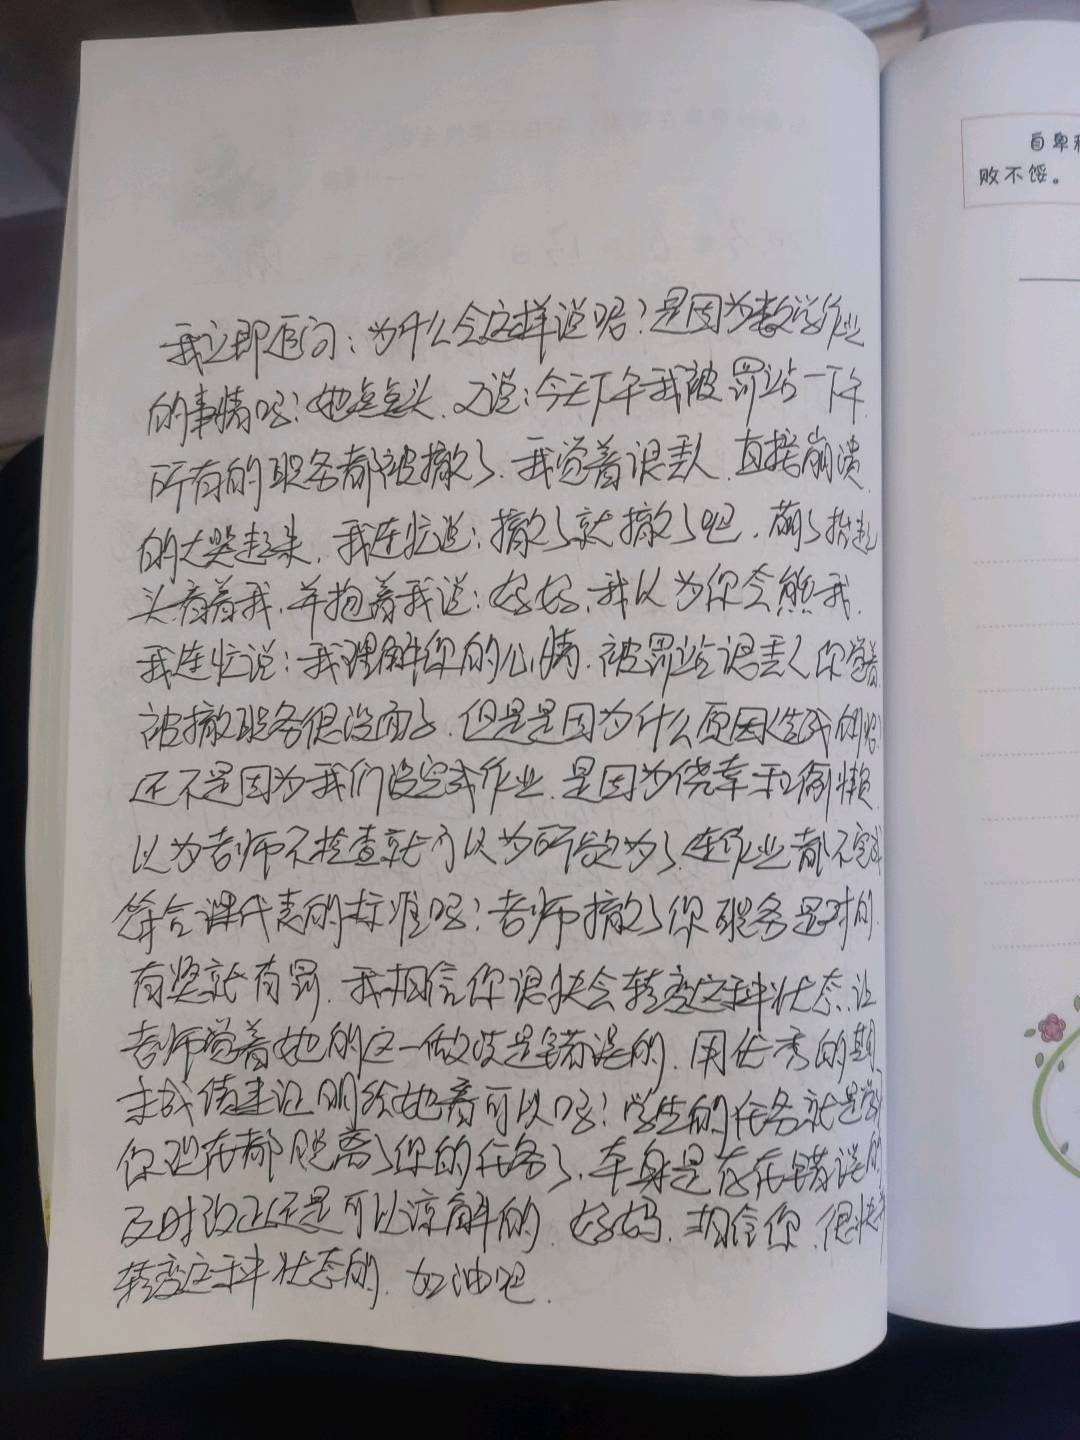 自卑
败不馁。
我立即追问：为什么会这样说呢？是因为数学作业
的事情吗？她点点头.又说：今天下午我被罚站一下午.
所有的职务都被撤了.我觉着很丢人.直接崩溃
的大哭起来.我连忙说：撤了就撤了吧.萌萌抬起
头看着我.并抱着我说：妈妈.我以为你会熊我.
我连忙说：我理解你的心情.被罚站很丢人你觉着
被撤职务很没面子.但是是因为什么原因造成的呢？
还不是因为我们没完成作业.是因为侥幸和偷懒.
以为老师不检查就可以为所欲为了.连作业都不完成
符合课代表的标准吗？老师撤了你职务是对的.
有奖就有罚.我相信你很快会转变这种状态.让
老师觉着她的这一做法是错误的.用优秀的期
末成绩来证明给她看可以吗？学生的任务就是学
你现在都脱离了你的任务了.本身是存在错误的
及时改正还是可以谅解的.妈妈.相信你.很快
转变这种状态的.加油吧.